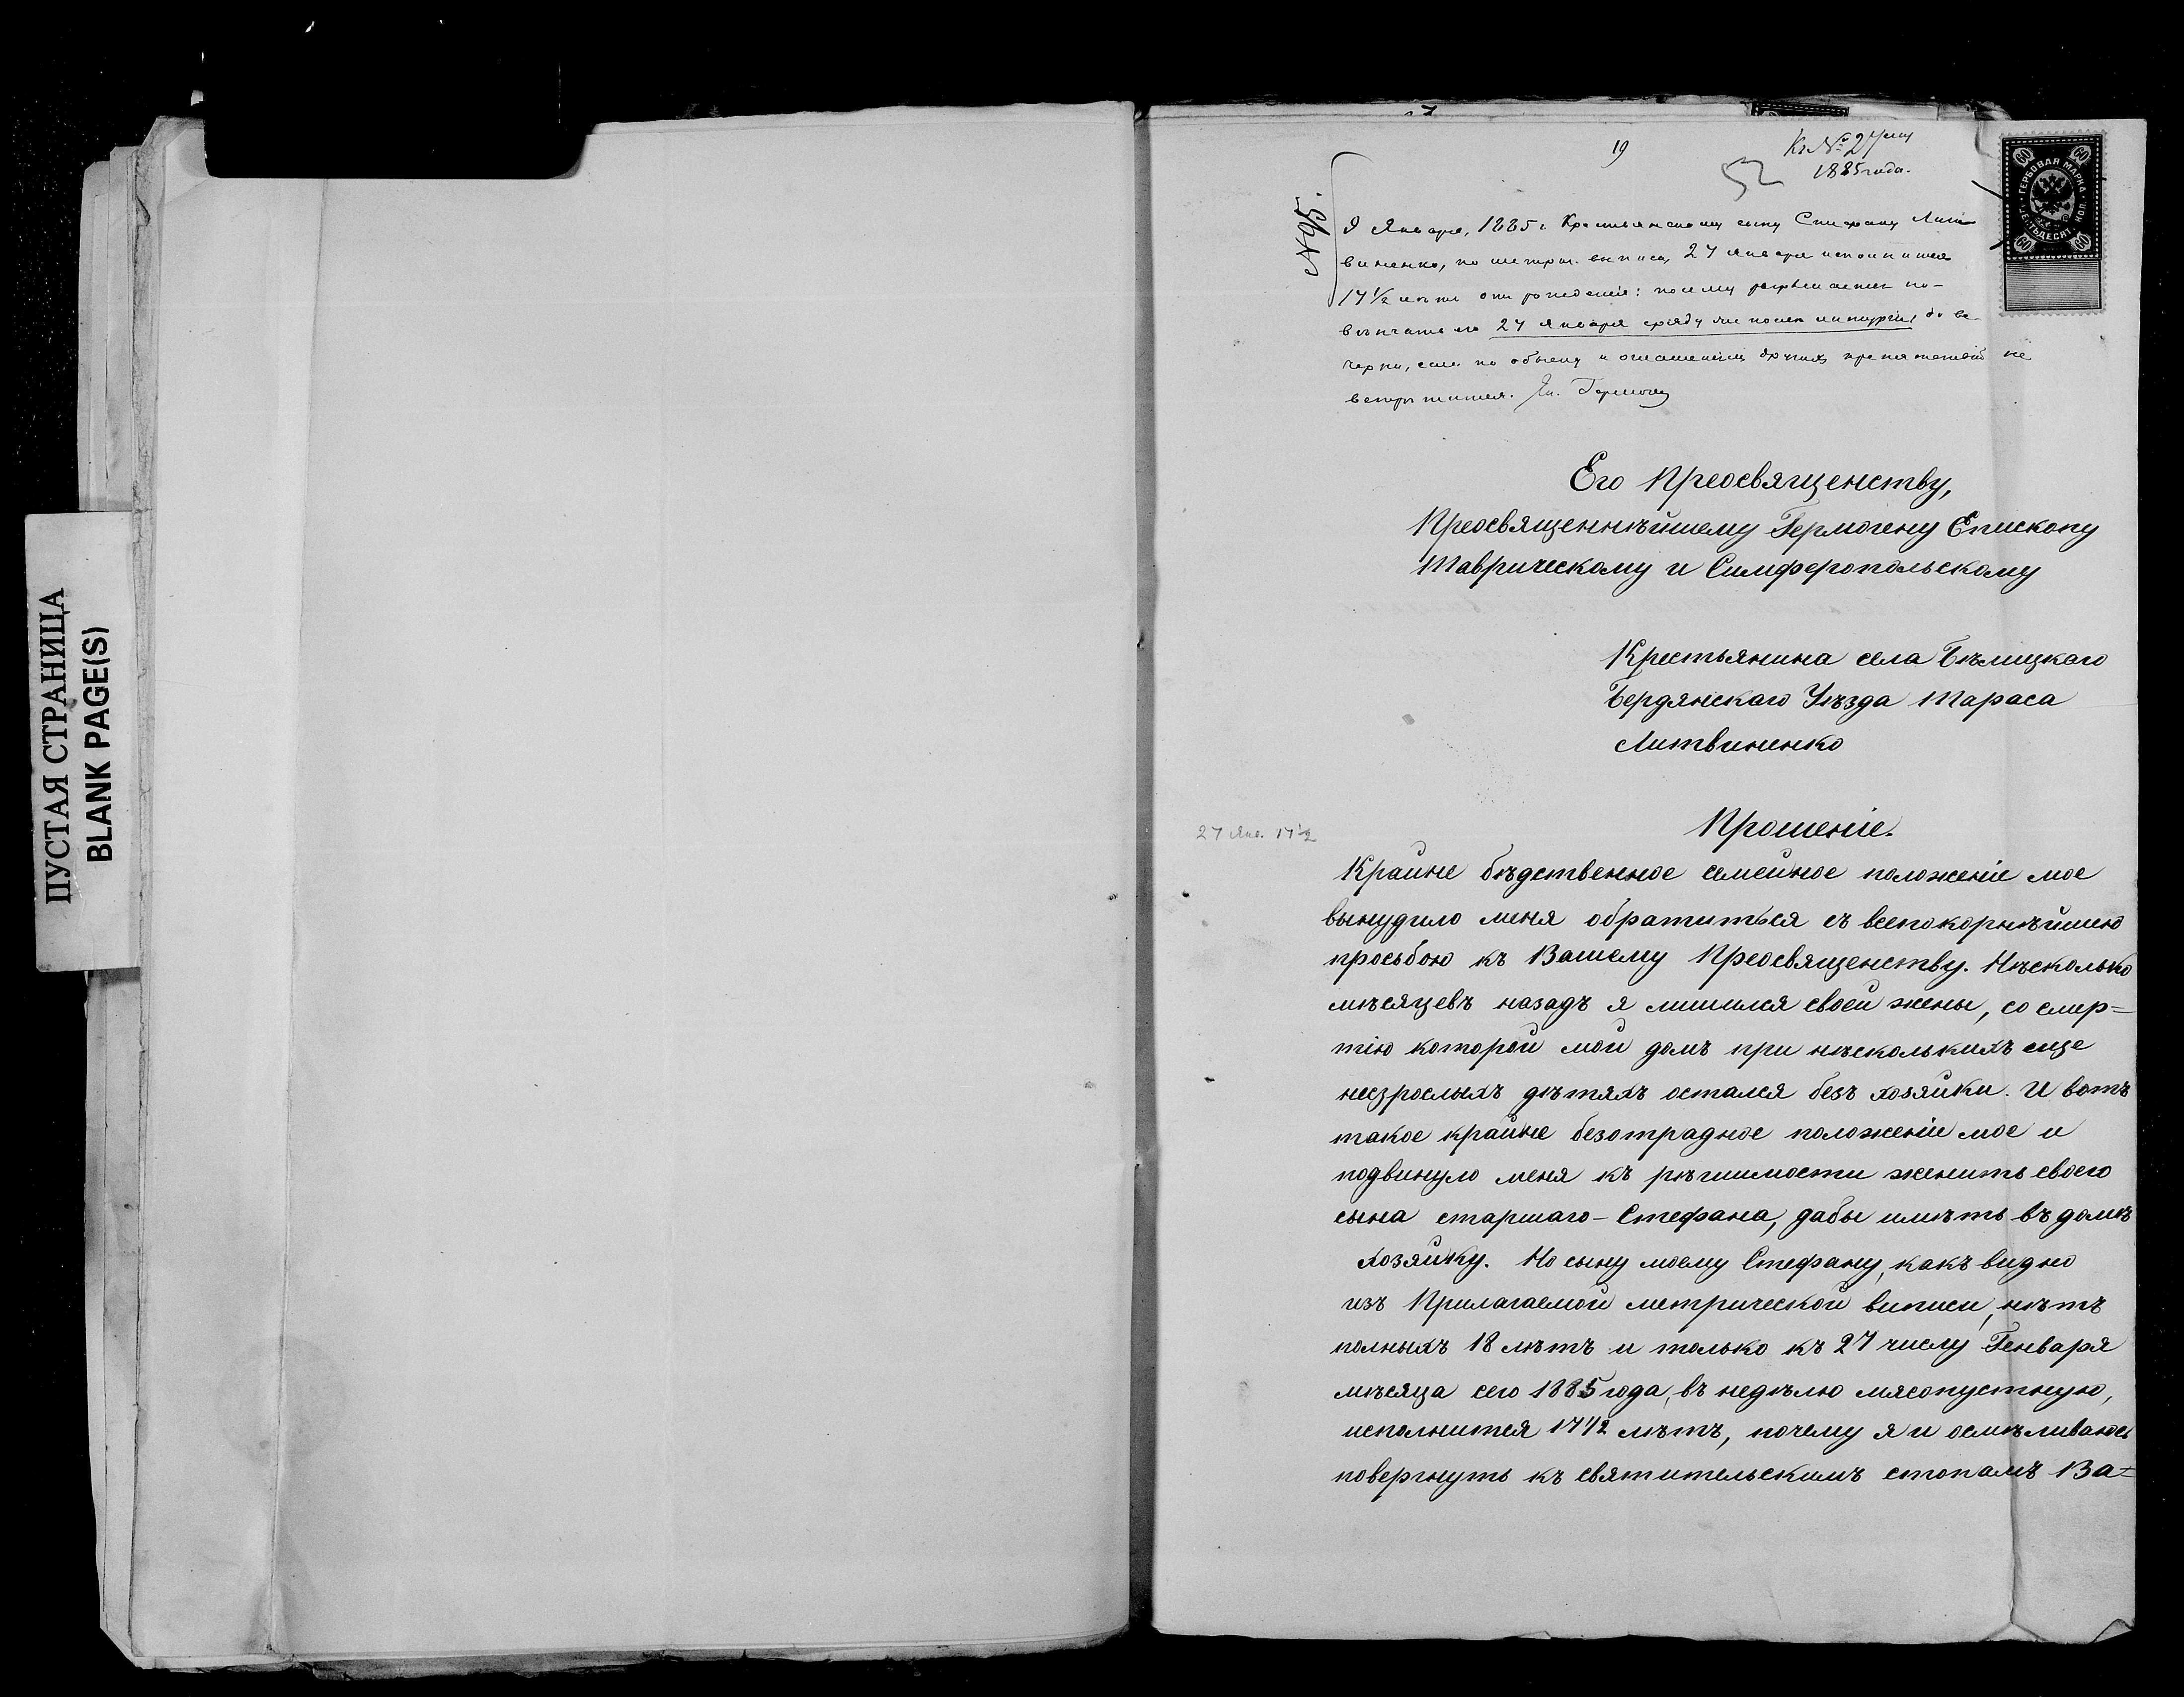 ПУСТАЯ СТРАНИЦА
BLANK PAGE(S)
19
Къ № 27
1885 года.
52
ГЕРБОВАЯ МАРКА
ШЕСТЬДЕСЯТ КОП.
60 60
60 60
№ 95.
9 Января, 1885 г. Крестьянскому сыну Стефану Лит-
виненко, по метрич. выписи, 27 января исполнится
17 1/2 лѣтъ отъ рожденія: посему разрѣшается по-
вѣнчать его 27 января сряду же послѣ литургіи, до ве-
черни, если по обыску и оглашеніямъ другихъ препятствій не
встрѣтится. Еп. Гермогенъ
Его Преосвященству,
Преосвященнѣйшему Гермогену Епископу
Таврическому и Симферопольскому
Крестьянина села Бѣлицкаго
Бердянскаго Уѣзда Тараса
Литвиненко
Прошеніе.
27 Янв. 17 1/2
Крайне бѣдственное семейное положеніе мое
вынудило меня обратиться съ всепокорнѣйшею
просьбою къ Вашему Преосвященству. Нѣсколько
мѣсяцевъ назадъ я лишился своей жены, со смер=
тію которой мой домъ при нѣсколькихъ еще
незрослыхъ дѣтяхъ остался безъ хозяйки. И вотъ
такое крайне безотрадное положеніе мое и
подвинуло меня къ рѣшимости женить своего
сына старшаго - Стефана, дабы имѣть въ домѣ
хозяйку. Но сыну моему Стефану, какъ видно
изъ Прилагаемой метрической виписи, нѣтъ
полныхъ 18 лѣтъ и только къ 27 числу Генваря
мѣсяца сего 1885 года, въ недѣлю мясопустную,
исполнится 17 1/2 лѣтъ, почему я и осмѣливаюсь
повергнуть къ святительскимъ стопамъ Ва=